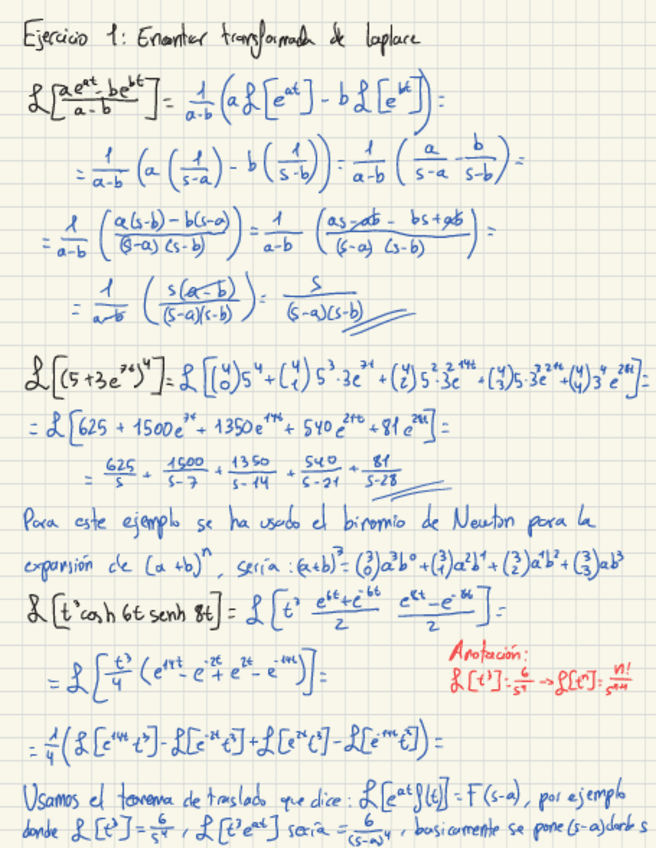 Ejercicio 1: Encontrar transformada de laplace
ℒ[(ae^{at} - be^{bt})/(a-b)] = 1/(a-b) (aℒ[e^{at}] - bℒ[e^{bt}]) =
= 1/(a-b) (a(1/(s-a)) - b(1/(s-b))) = 1/(a-b) (a/(s-a) - b/(s-b)) =
= 1/(a-b) ((a(s-b) - b(s-a))/((s-a)(s-b))) = 1/(a-b) ((as - ab - bs + ab)/((s-a)(s-b))) =
= 1/(a-b) (s(a-b)/((s-a)(s-b))) = s/((s-a)(s-b))
ℒ[(5+3e^{7t})^4] = ℒ[(4 0)5^4 + (4 1)5^3·3e^{7t} + (4 2)5^2·3^2e^{14t} + (4 3)5·3^3e^{21t} + (4 4)3^4e^{28t}] =
= ℒ[625 + 1500e^{7t} + 1350e^{14t} + 540e^{21t} + 81e^{28t}] =
= 625/s + 1500/(s-7) + 1350/(s-14) + 540/(s-21) + 81/(s-28)
Para este ejemplo se ha usado el binomio de Newton para la
expansión de (a+b)^n, sería: (a+b)^3 = (3 0)a^3b^0 + (3 1)a^2b^1 + (3 2)a^1b^2 + (3 3)ab^3
ℒ[t^3 cosh 6t senh 8t] = ℒ[t^3 (e^{6t}+e^{-6t})/2 (e^{8t}-e^{-8t})/2] =
Anotación:
= ℒ[t^3/4 (e^{14t} - e^{-2t} + e^{2t} - e^{-14t})] =
ℒ[t^3] = 6/s^4 → ℒ[t^n] = n!/s^{n+1}
= 1/4 (ℒ[e^{14t}t^3] - ℒ[e^{-2t}t^3] + ℒ[e^{2t}t^3] - ℒ[e^{-14t}t^3]) =
Usamos el teorema de traslado que dice: ℒ[e^{at}f(t)] = F(s-a), por ejemplo
donde ℒ[t^3] = 6/s^4, ℒ[t^3e^{at}] sería = 6/(s-a)^4, basicamente se pone (s-a) donde s